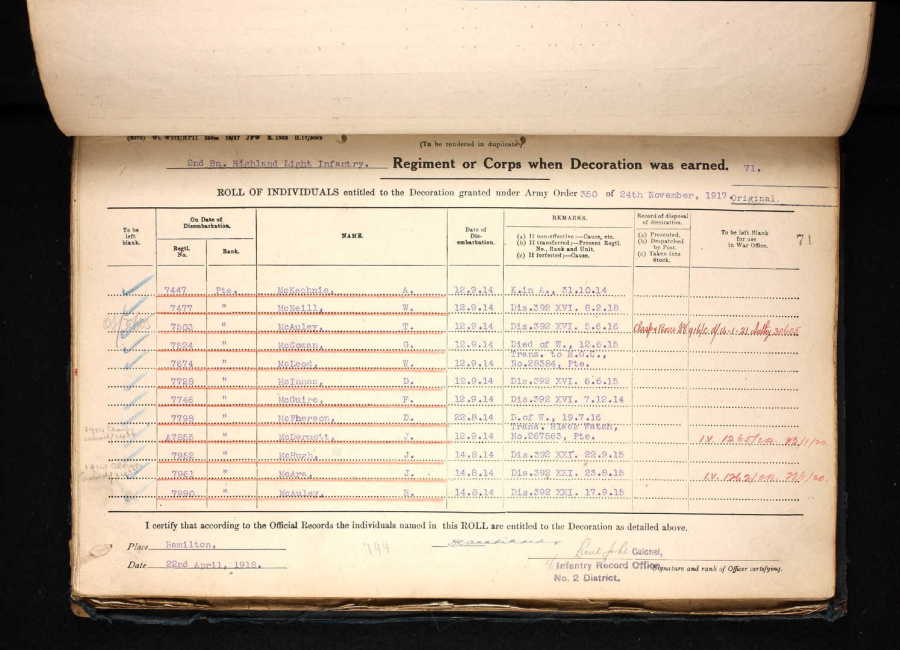 (To be rendered in duplicate)
2nd Bn. Highland Light Infantry. Regiment or Corps when Decoration was earned. 71.
ROLL OF INDIVIDUALS entitled to the Decoration granted under Army Order 350 of 24th November, 1917. Original.
To be left blank. On Date of Disembarkation. Regtl. No. Rank. NAME. Date of Disembarkation. REMARKS. (a) If non-effective:—Cause, etc. (b) If transferred:—Present Regtl. No., Rank and Unit. (c) If forfeited:—Cause. Record of disposal of decoration. (a) Presented. (b) Despatched by Post. (c) Taken into Stock. To be left Blank for use in War Office. 71
7447 Pte. McKechnie, A. 12.9.14 K.in A., 31.10.14
7477 " McNeill, W. 12.9.14 Dis.392 XVI. 6.2.18
7503 " McAuley, T. 12.9.14 Dis.392 XVI. 5.6.16
7624 " McGowan, G. 12.9.14 Died of W., 12.6.15
7674 " McLeod, W. 12.9.14 Trans. to No.28384, Pte.
7728 " McInnes, D. 12.9.14 Dis.392 XVI. 6.6.15
7746 " McGuire, F. 12.9.14 Dis.392 XVI. 7.12.14
7798 " McPherson, D. 22.8.14 D.of W., 19.7.16
A7855 " McDermott, J. 12.9.14 Trans. Black Watch, No.267563, Pte.
7952 " McHugh, J. 14.8.14 Dis.392 XXI. 22.9.15
7961 " McAra, J. 14.8.14 Dis.392 XXI. 23.8.15
7990 " McAuley, R. 14.8.14 Dis.392 XXI. 17.9.15
I certify that according to the Official Records the individuals named in this ROLL are entitled to the Decoration as detailed above.
Place Hamilton. 794 Colonel,
Date 22nd April, 1918. Infantry Record Office, Signature and rank of Officer certifying.
No. 2 District.